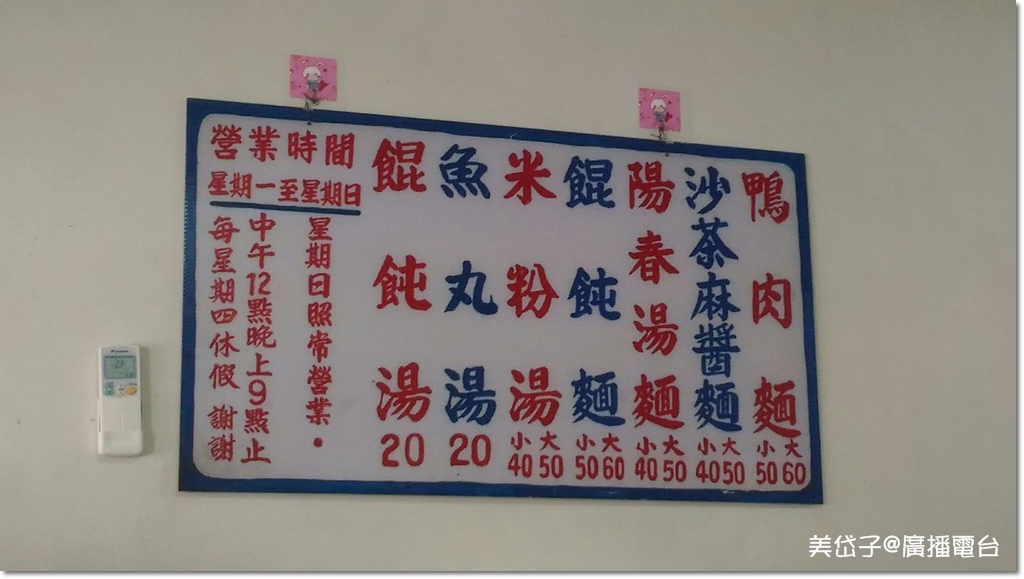 鴨肉麵 小50 大60
沙茶麻醬麵 小40 大50
陽春湯麵 小40 大50
餛飩麵 小50 大60
米粉湯 小40 大50
魚丸湯 20
餛飩湯 20
營業時間
星期一至星期日
星期日照常營業.
中午12點晚上9點止
每星期四休假 謝謝
美岱子@廣播電台